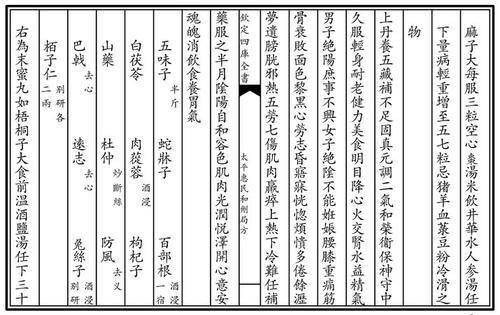 麻子大每服三粒空心棗湯米飲井華水人參湯任
下量病輕重增至五七粒忌猪羊血菉豆粉冷滑之
物
上丹養五藏補不足固真元調二氣和榮衛保神守中
久服輕身耐老健力美食明目降心火交腎水益精氣
男子絶陽庶事不興女子絶陰不能姙娠腰膝重痛筋
骨衰敗面色黎黑心勞志昏寤寐恍惚煩憒多倦餘瀝
夢遺膀胱邪熱五勞七傷肌肉羸瘁上熱下冷難任補
欽定四庫全書 太平惠民和州局方
藥服之半月陰陽自和容色肌肉光潤悦澤開心意安
魂魄消飲食養胃氣
五味子半斤 蛇牀子 百部根酒浸一宿
白茯苓 肉蓯蓉酒浸 枸杞子
山藥 杜仲炒斷絲 防風去叉
巴戟去心 遠志去心 兎絲子酒浸別研
栢子仁別研各二兩
右為末蜜丸如梧桐子大食前温酒鹽湯任下三十